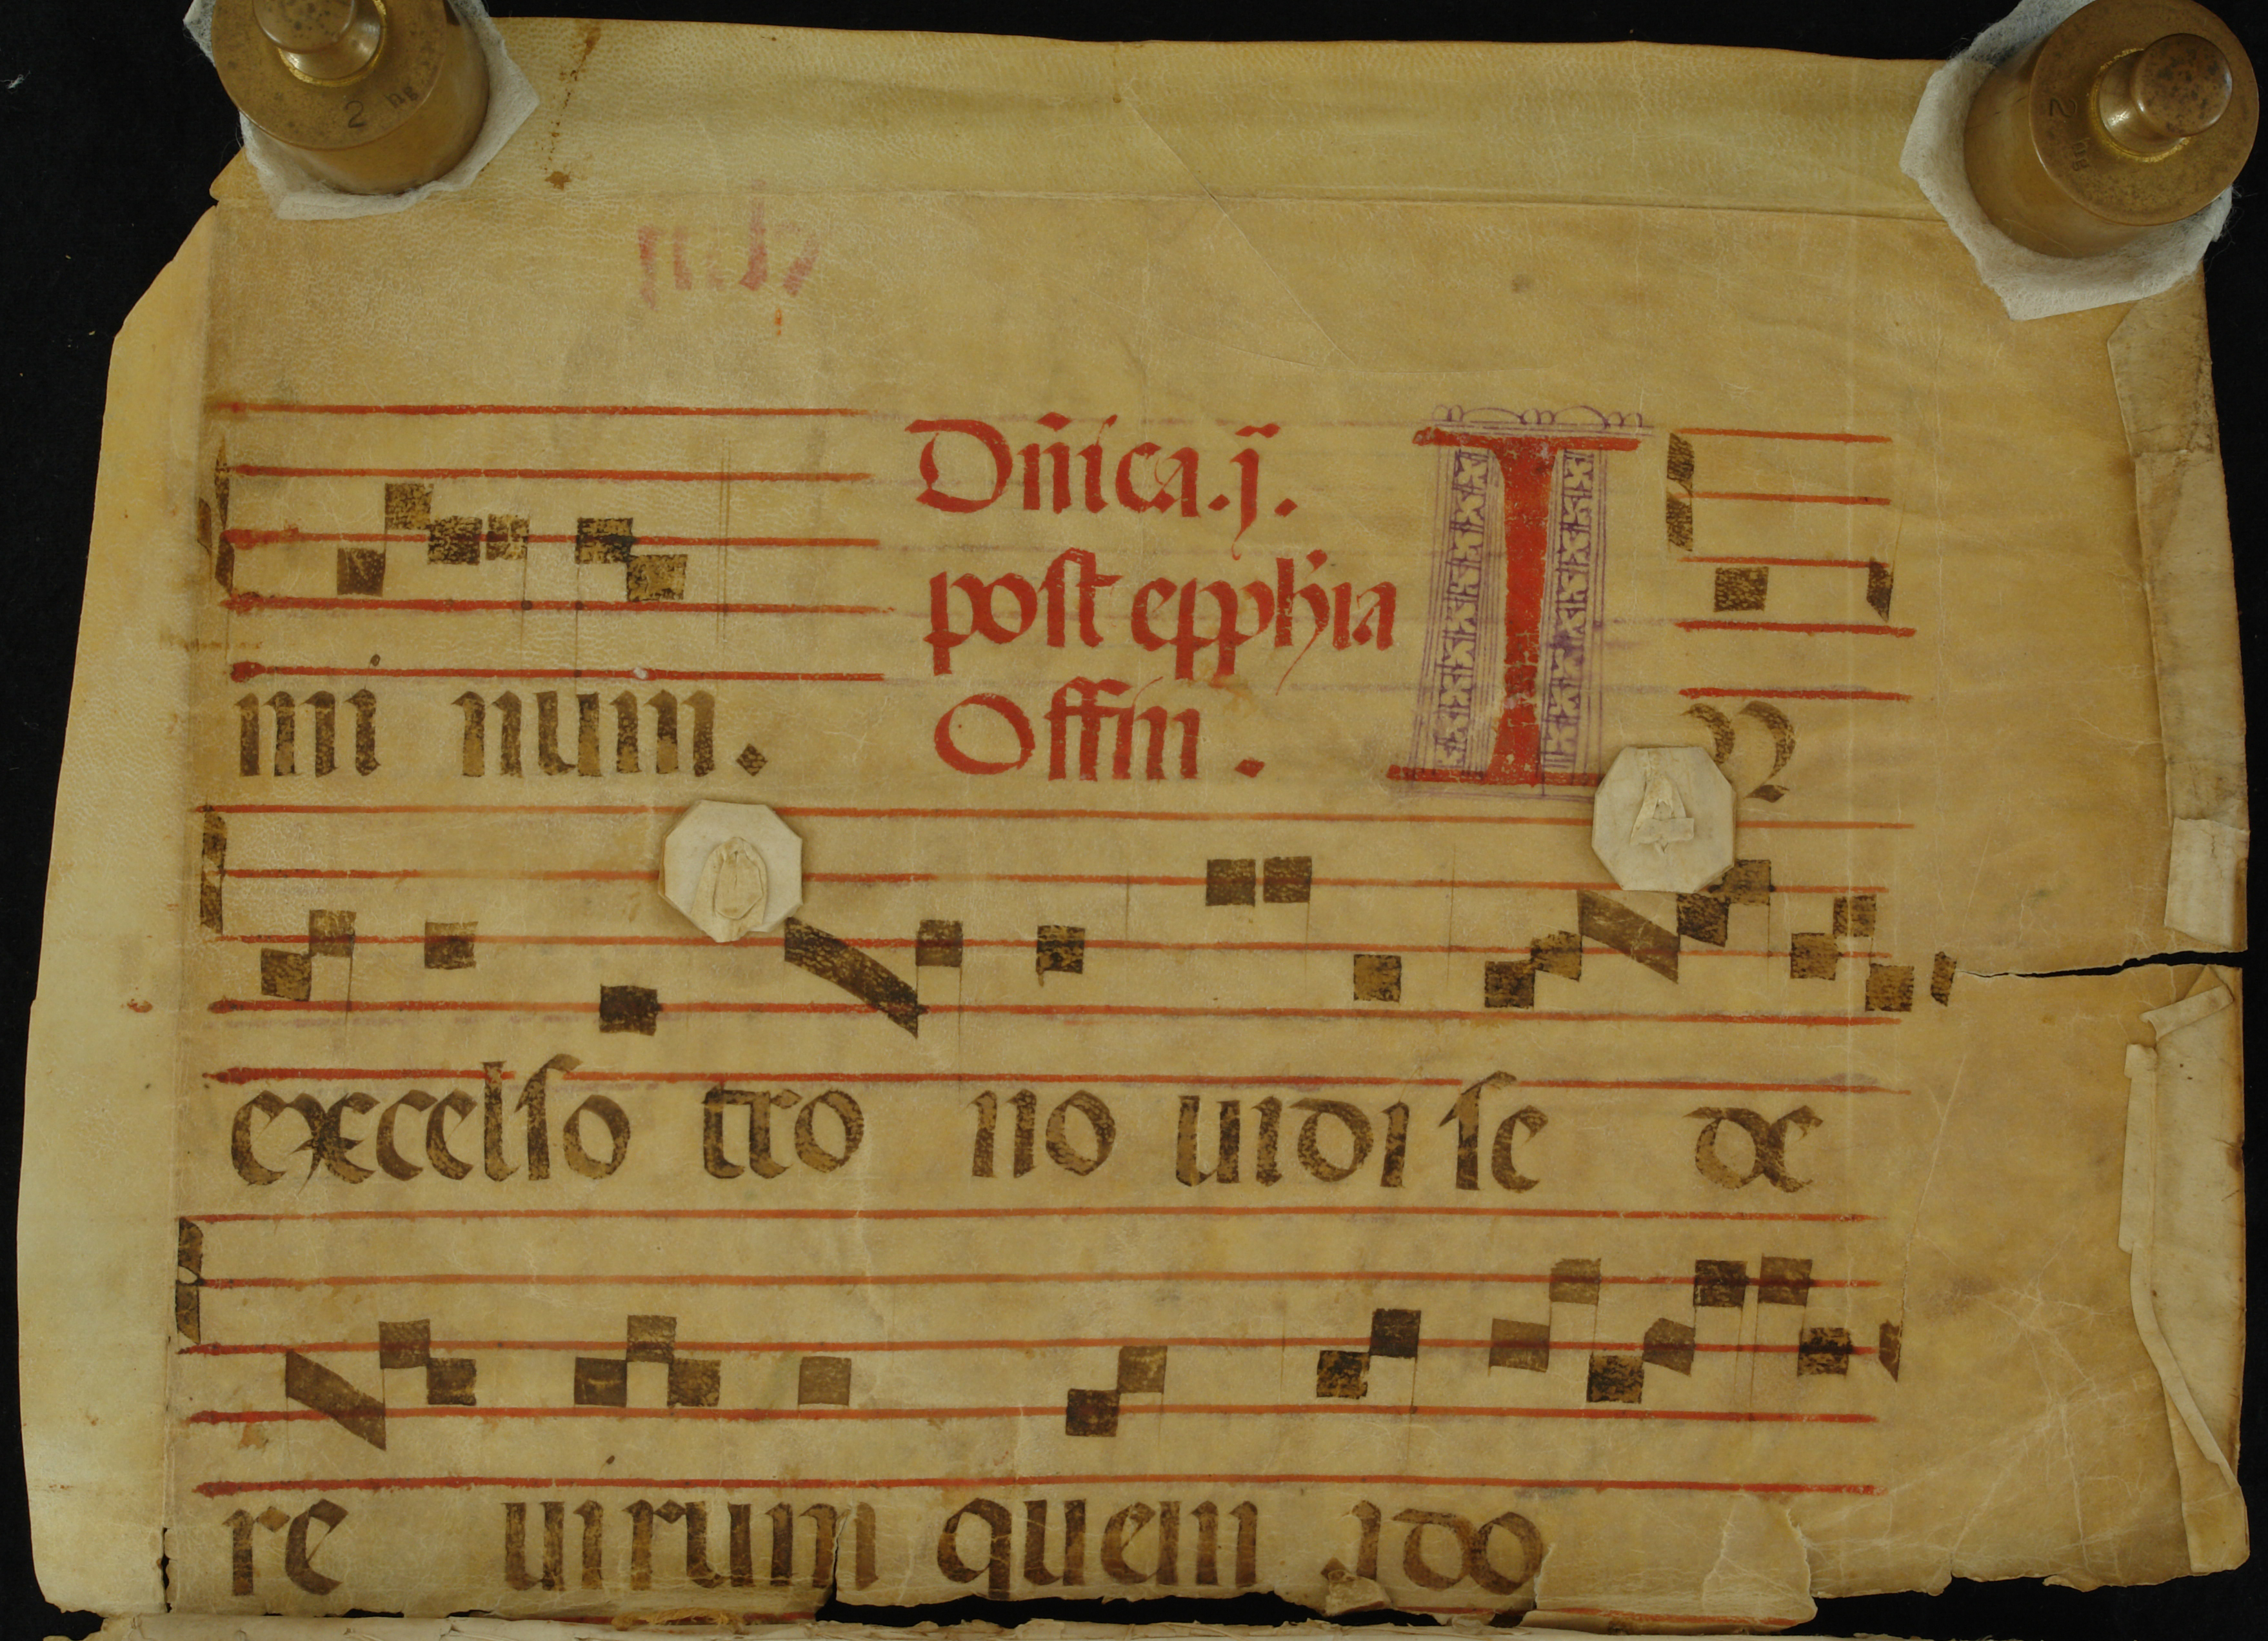 mi num. Dn̄ica.j̄.
post epph̄ia
Offm̄. IN
excelso tro no uidi se de
re uirum quem ado